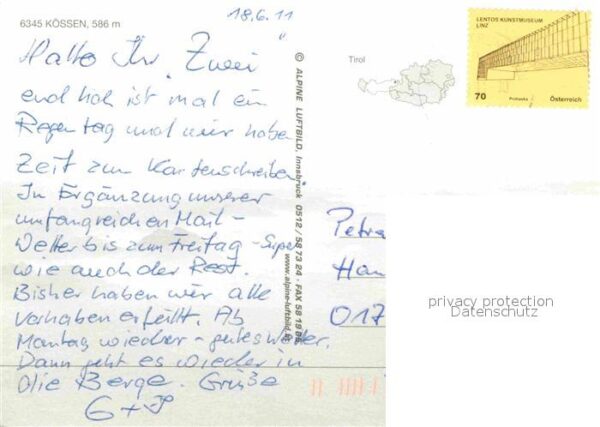 18.6.11
6345 KÖSSEN, 586 m
Hallo Ihr Zwei
endlich ist mal ein
Regentag und wir haben
Zeit zum Kartenschreiben.
In Ergänzung unserer
umfangreichen Mail -
Wetter bis zum Freitag - Super
wie auch der Rest.
Bisher haben wir alle
Vorhaben erfüllt. Ab
Montag wieder - gutes Wetter.
Dann geht es wieder in
die Berge. Grüße
G+J
© ALPINE LUFTBILD, Innsbruck 0512 / 58 73 24 · FAX 58 19 88
www.alpine-luftbild.at
Tirol
LENTOS KUNSTMUSEUM
LINZ
70 Österreich
Petra
Han
017
privacy protection
Datenschutz